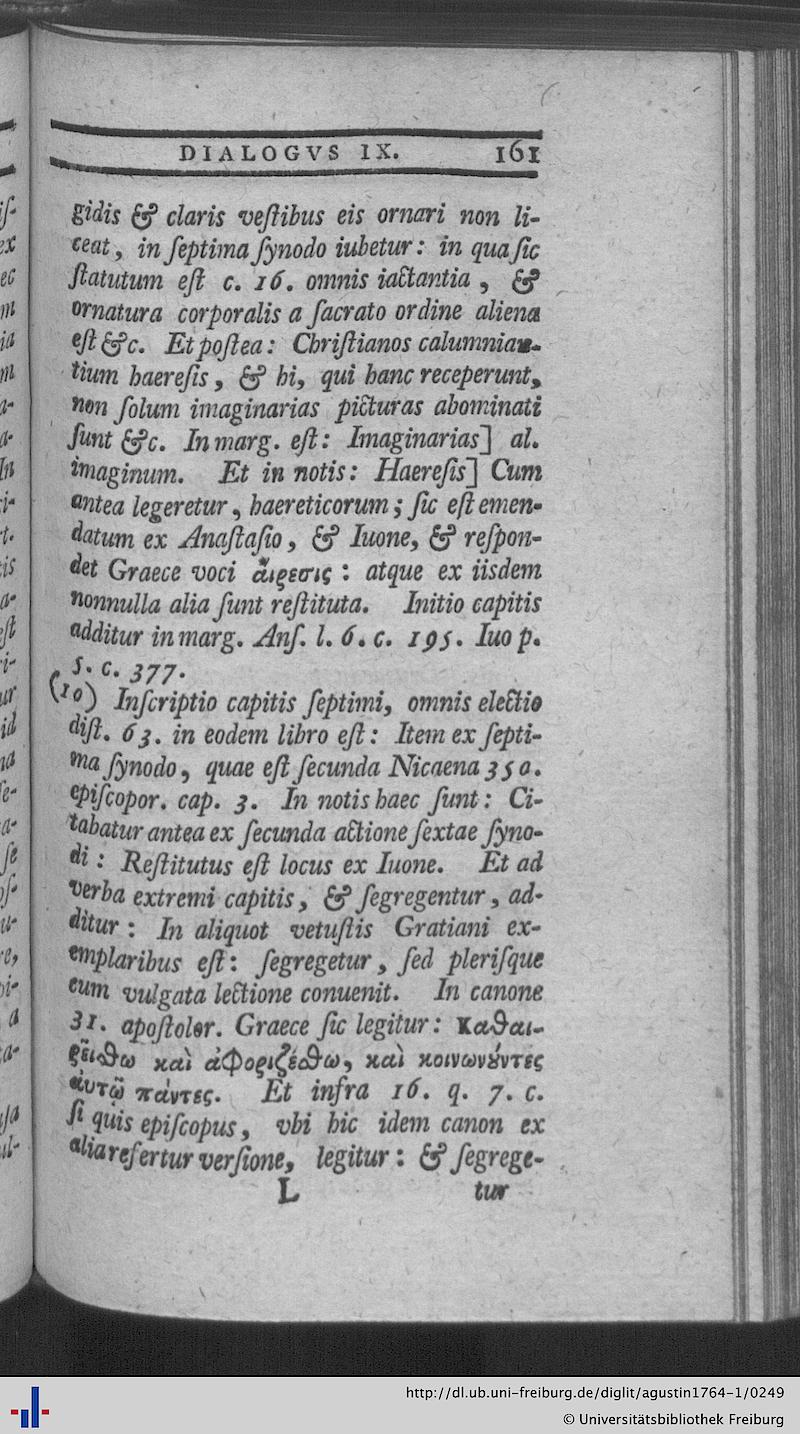 DIALOGVS IX. 161
gidis & claris veſtibus eis ornari non li-
ceat, in ſeptima ſynodo iubetur: in qua ſic
ſtatutum eſt c. 16. omnis iactantia, &
ornatura corporalis a ſacrato ordine aliena
eſt &c. Et poſtea: Chriſtianos calumnian-
tium haereſis, & hi, qui hanc receperunt,
non ſolum imaginarias picturas abominati
ſunt &c. In marg. eſt: Imaginarias] al.
imaginum. Et in notis: Haereſis] Cum
antea legeretur, haereticorum; ſic eſt emen-
datum ex Anaſtaſio, & Iuone, & reſpon-
det Graece voci ἅιρεσις: atque ex iisdem
nonnulla alia ſunt reſtituta. Initio capitis
additur in marg. Anſ. l. 6. c. 195. Iuo p.
5. c. 377.
(10) Inſcriptio capitis ſeptimi, omnis electio
diſt. 63. in eodem libro eſt: Item ex ſepti-
ma ſynodo, quae eſt ſecunda Nicaena 350.
epiſcopor. cap. 3. In notis haec ſunt: Ci-
tabatur antea ex ſecunda actione ſextae ſyno-
di: Reſtitutus eſt locus ex Iuone. Et ad
verba extremi capitis, & ſegregentur, ad-
ditur: In aliquot vetuſtis Gratiani ex-
emplaribus eſt: ſegregetur, ſed pleriſque
cum vulgata lectione conuenit. In canone
31. apoſtolor. Graece ſic legitur: καθαι-
ρείσθω καὶ ἀφοριζέσθω, καὶ κοινωνοῦντες
ἀυτῷ πάντες. Et infra 16. q. 7. c.
ſi quis epiſcopus, vbi hic idem canon ex
alia refertur verſione, legitur: & ſegrege-
L tur
http://dl.ub.uni-freiburg.de/diglit/agustin1764-1/0249
© Universitätsbibliothek Freiburg